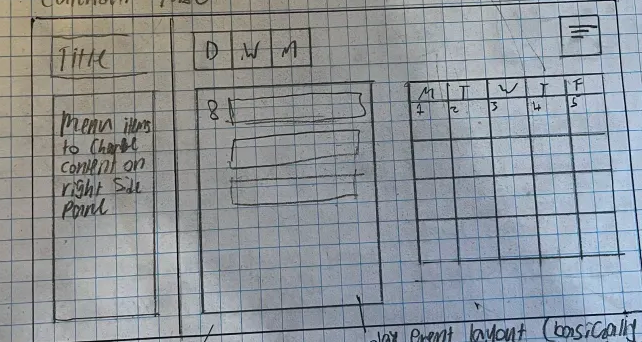 Title
D W M
Menu items
to change
content on
right side
panel
8
M T W T F
1 2 3 4 5
event layout (basically